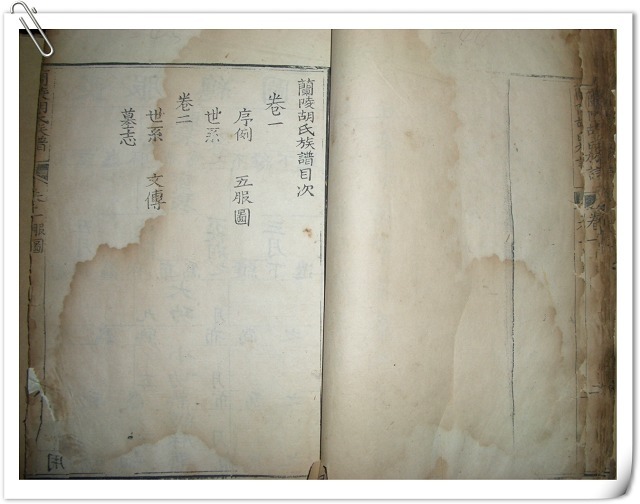 蘭陵胡氏族譜目次
卷一
序例 五服圖
世系
卷二
世系 文傳
墓志
卷一
服圖